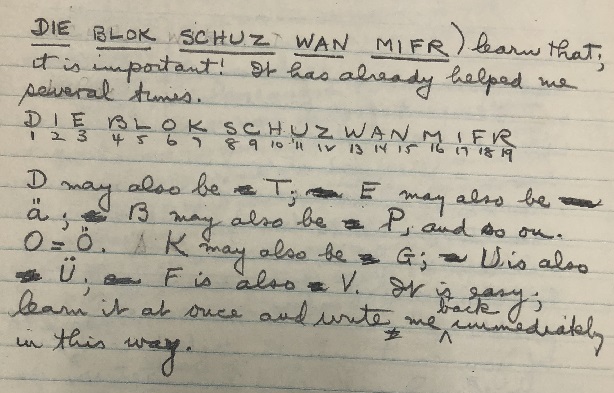 DIE BLOK SCHUZ WAN MIFR) learn that;
it is important! It has already helped me
several times.
D I E B L O K S C H U Z W A N M I F R
1 2 3 4 5 6 7 8 9 10 11 12 13 14 15 16 17 18 19
D may also be T; E may also be
ä; B may also be P, and so on.
O = Ö. K may also be G; U is also
Ü; F is also V. It is easy;
learn it at once and write me back immediately
in this way.